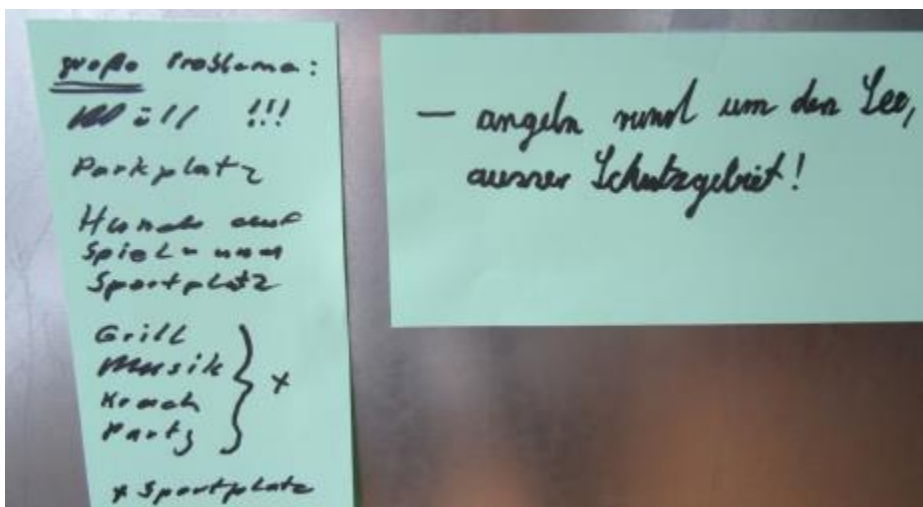 große Probleme:
Müll !!!
Parkplatz
Hunde auf
Spiel- und
Sportplatz
Grill
Musik
Krach
Party
} x
x Sportplatz
– angeln rund um den See,
ausser Schutzgebiet!